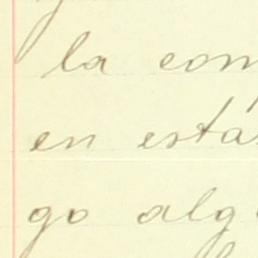 la com
en está
go alg